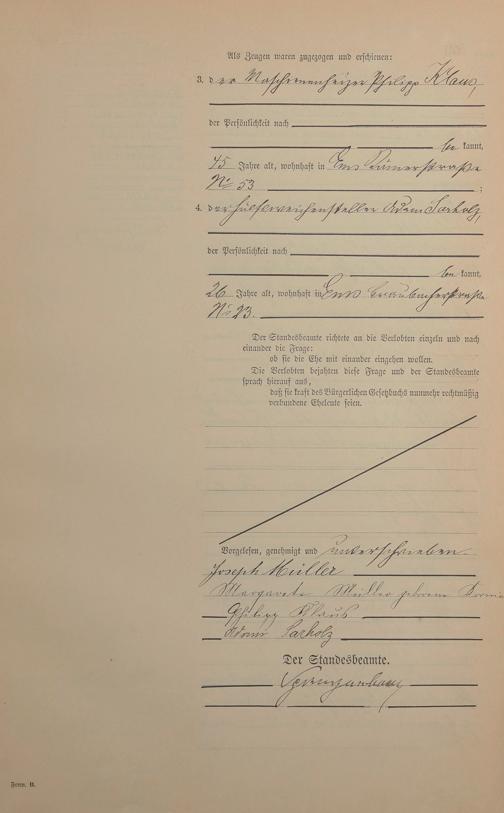 Als Zeugen waren zugezogen und erschienen:
3. der Maschinenheizer Philipp Klaus,
der Persönlichkeit nach
be kannt,
45 Jahre alt, wohnhaft in Ems Römerstraße
No 53 ;
4. der Hülfsweichensteller Adam Sarholz,
der Persönlichkeit nach
be kannt,
26 Jahre alt, wohnhaft in Ems Braubacherstraße
No 23.
Der Standesbeamte richtete an die Verlobten einzeln und nach
einander die Frage:
ob sie die Ehe mit einander eingehen wollen.
Die Verlobten bejahten diese Frage und der Standesbeamte
sprach hierauf aus,
daß sie kraft des Bürgerlichen Gesetzbuchs nunmehr rechtmäßig
verbundene Eheleute seien.
Vorgelesen, genehmigt und unterschrieben
Joseph Müller
Margareta Müller geborene
Philipp Klaus
Adam Sarholz
Der Standesbeamte.
Form. B.